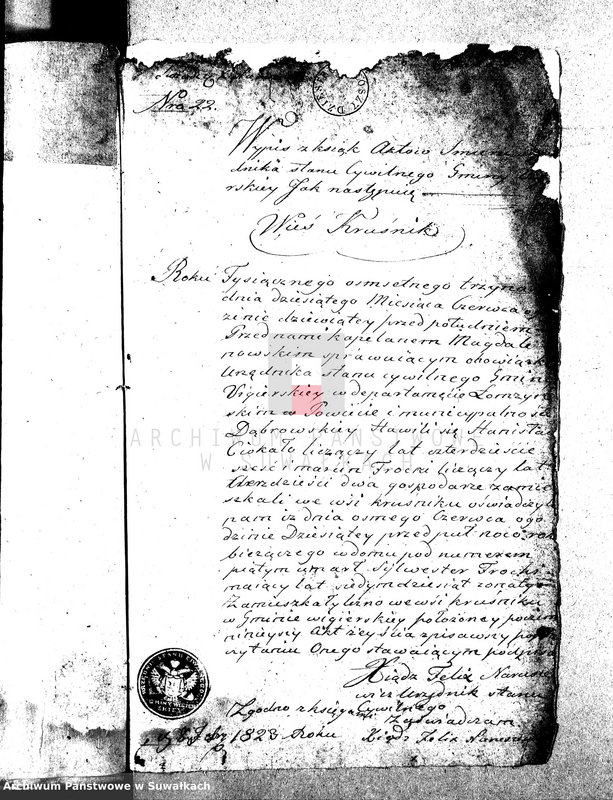 Nro 22.
Wypis z ksiąk Aktow
dnika stanu Cywilnego Gminy
rskiey Jak następuie
Wieś Kruśnik
Roku Tysiącznego osmsetnego
dnia dziesiątego Miesiąca Czerwca o
zinie dziewiątey przed południem
Przed nami kapelanem Magdale
nowskim sprawuiącym obowiązk
Urzędnika stanu cywilnego Gmin
Vigierskiey w departamęcie Łomzyn
skim w Powiecie i municypalnośc
Dąbrowskiey stawili się Stanisła
Ciokało liczący lat czterdzieście
sześć i marcin Trocki liczący lat
czterdzieści dwa gospodarze zamie
szkali we wśi kruśniku oświadczy
nam iz dnia osmego Czerwca ogo
dzinie Dziesiątey przed puł nocő rok
bieżącego w domu pod numerem
piątym umarł Sylwester Trocki
maiący lat siedymdziesiąt zonaty
Zamieszkały we wśi kruśniku
w Gminie wigierskiey położoney
ninieyszy Akt zeyścia zpisawszy po
czytaniu Onego stawaiącym podpis
Xiądz Felix Narusze
wicz Urzędnik stanu
Cywilnego
Zgodno z księgami Zaświadczam
1823 Roku Xiądz Felix Narusze
ARCHIWUM PAŃSTWOWE
W SUWAŁKACH
Archiwum Państwowe w Suwałkach